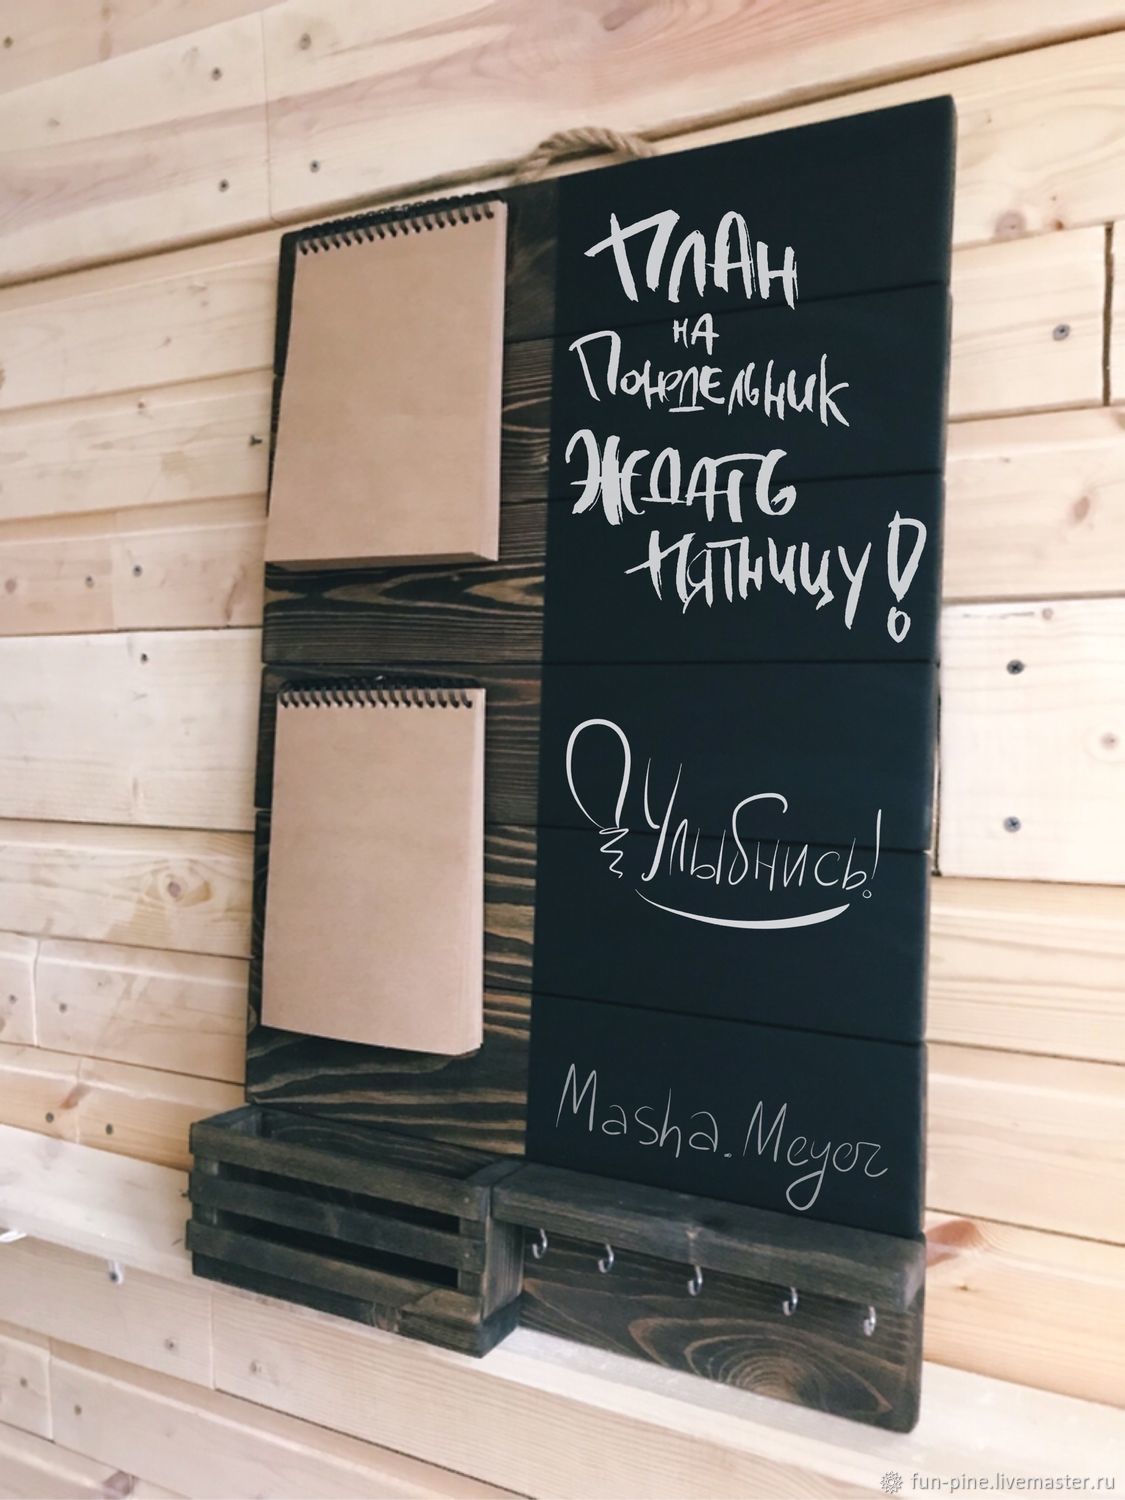 ПЛАН
на
Понедельник
ЖДАТЬ
ПЯТНИЦУ!
Улыбнись!
Masha.Meyer
fun-pine.livemaster.ru